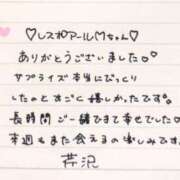 ♡レスポアールMちゃん♡
ありがとうございました♡
サプライズ本当にびっくり
したのとすごく嬉しかったです。
長時間ご一緒できて幸せでした♡
来週もまた会えるの楽しみです。
芹沢